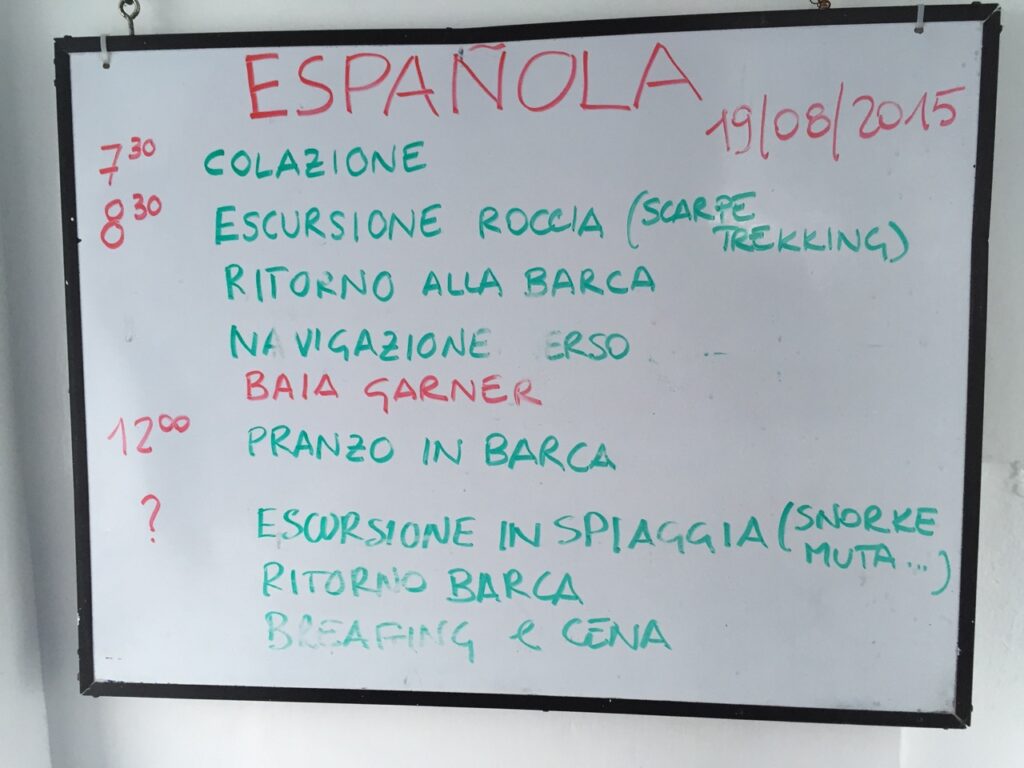 ESPAÑOLA
19/08/2015
7 30 COLAZIONE
8 30 ESCURSIONE ROCCIA (SCARPE
TREKKING)
RITORNO ALLA BARCA
NAVIGAZIONE ERSO
BAIA GARNER
12 00 PRANZO IN BARCA
? ESCURSIONE IN SPIAGGIA (SNORKE
MUTA...)
RITORNO BARCA
BREAFING e CENA